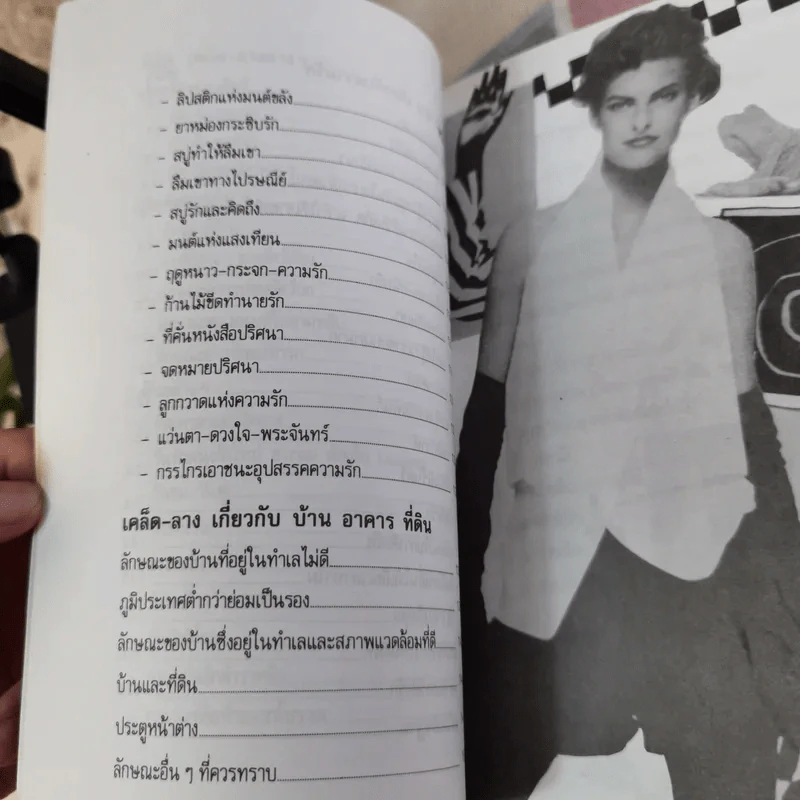 - ลิปสติกแห่งมนต์ขลัง
- ยาหม่องกระซิบรัก
- สบู่ทำให้ลืมเขา
- ลืมเขาทางไปรษณีย์
- สบู่รักและคิดถึง
- มนต์แห่งแสงเทียน
- ฤดูหนาว-กระจก-ความรัก
- ก้านไม้ขีดทำนายรัก
- ที่คั่นหนังสือปริศนา
- จดหมายปริศนา
- ลูกกวาดแห่งความรัก
- แว่นตา-ดวงใจ-พระจันทร์
- กรรไกรเอาชนะอุปสรรคความรัก
เคล็ด-ลาง เกี่ยวกับ บ้าน อาคาร ที่ดิน
ลักษณะของบ้านที่อยู่ในทำเลไม่ดี
ภูมิประเทศต่ำกว่าย่อมเป็นรอง
ลักษณะของบ้านซึ่งอยู่ในทำเลและสภาพแวดล้อมที่ดี
บ้านและที่ดิน
ประตูหน้าต่าง
ลักษณะอื่น ๆ ที่ควรทราบ